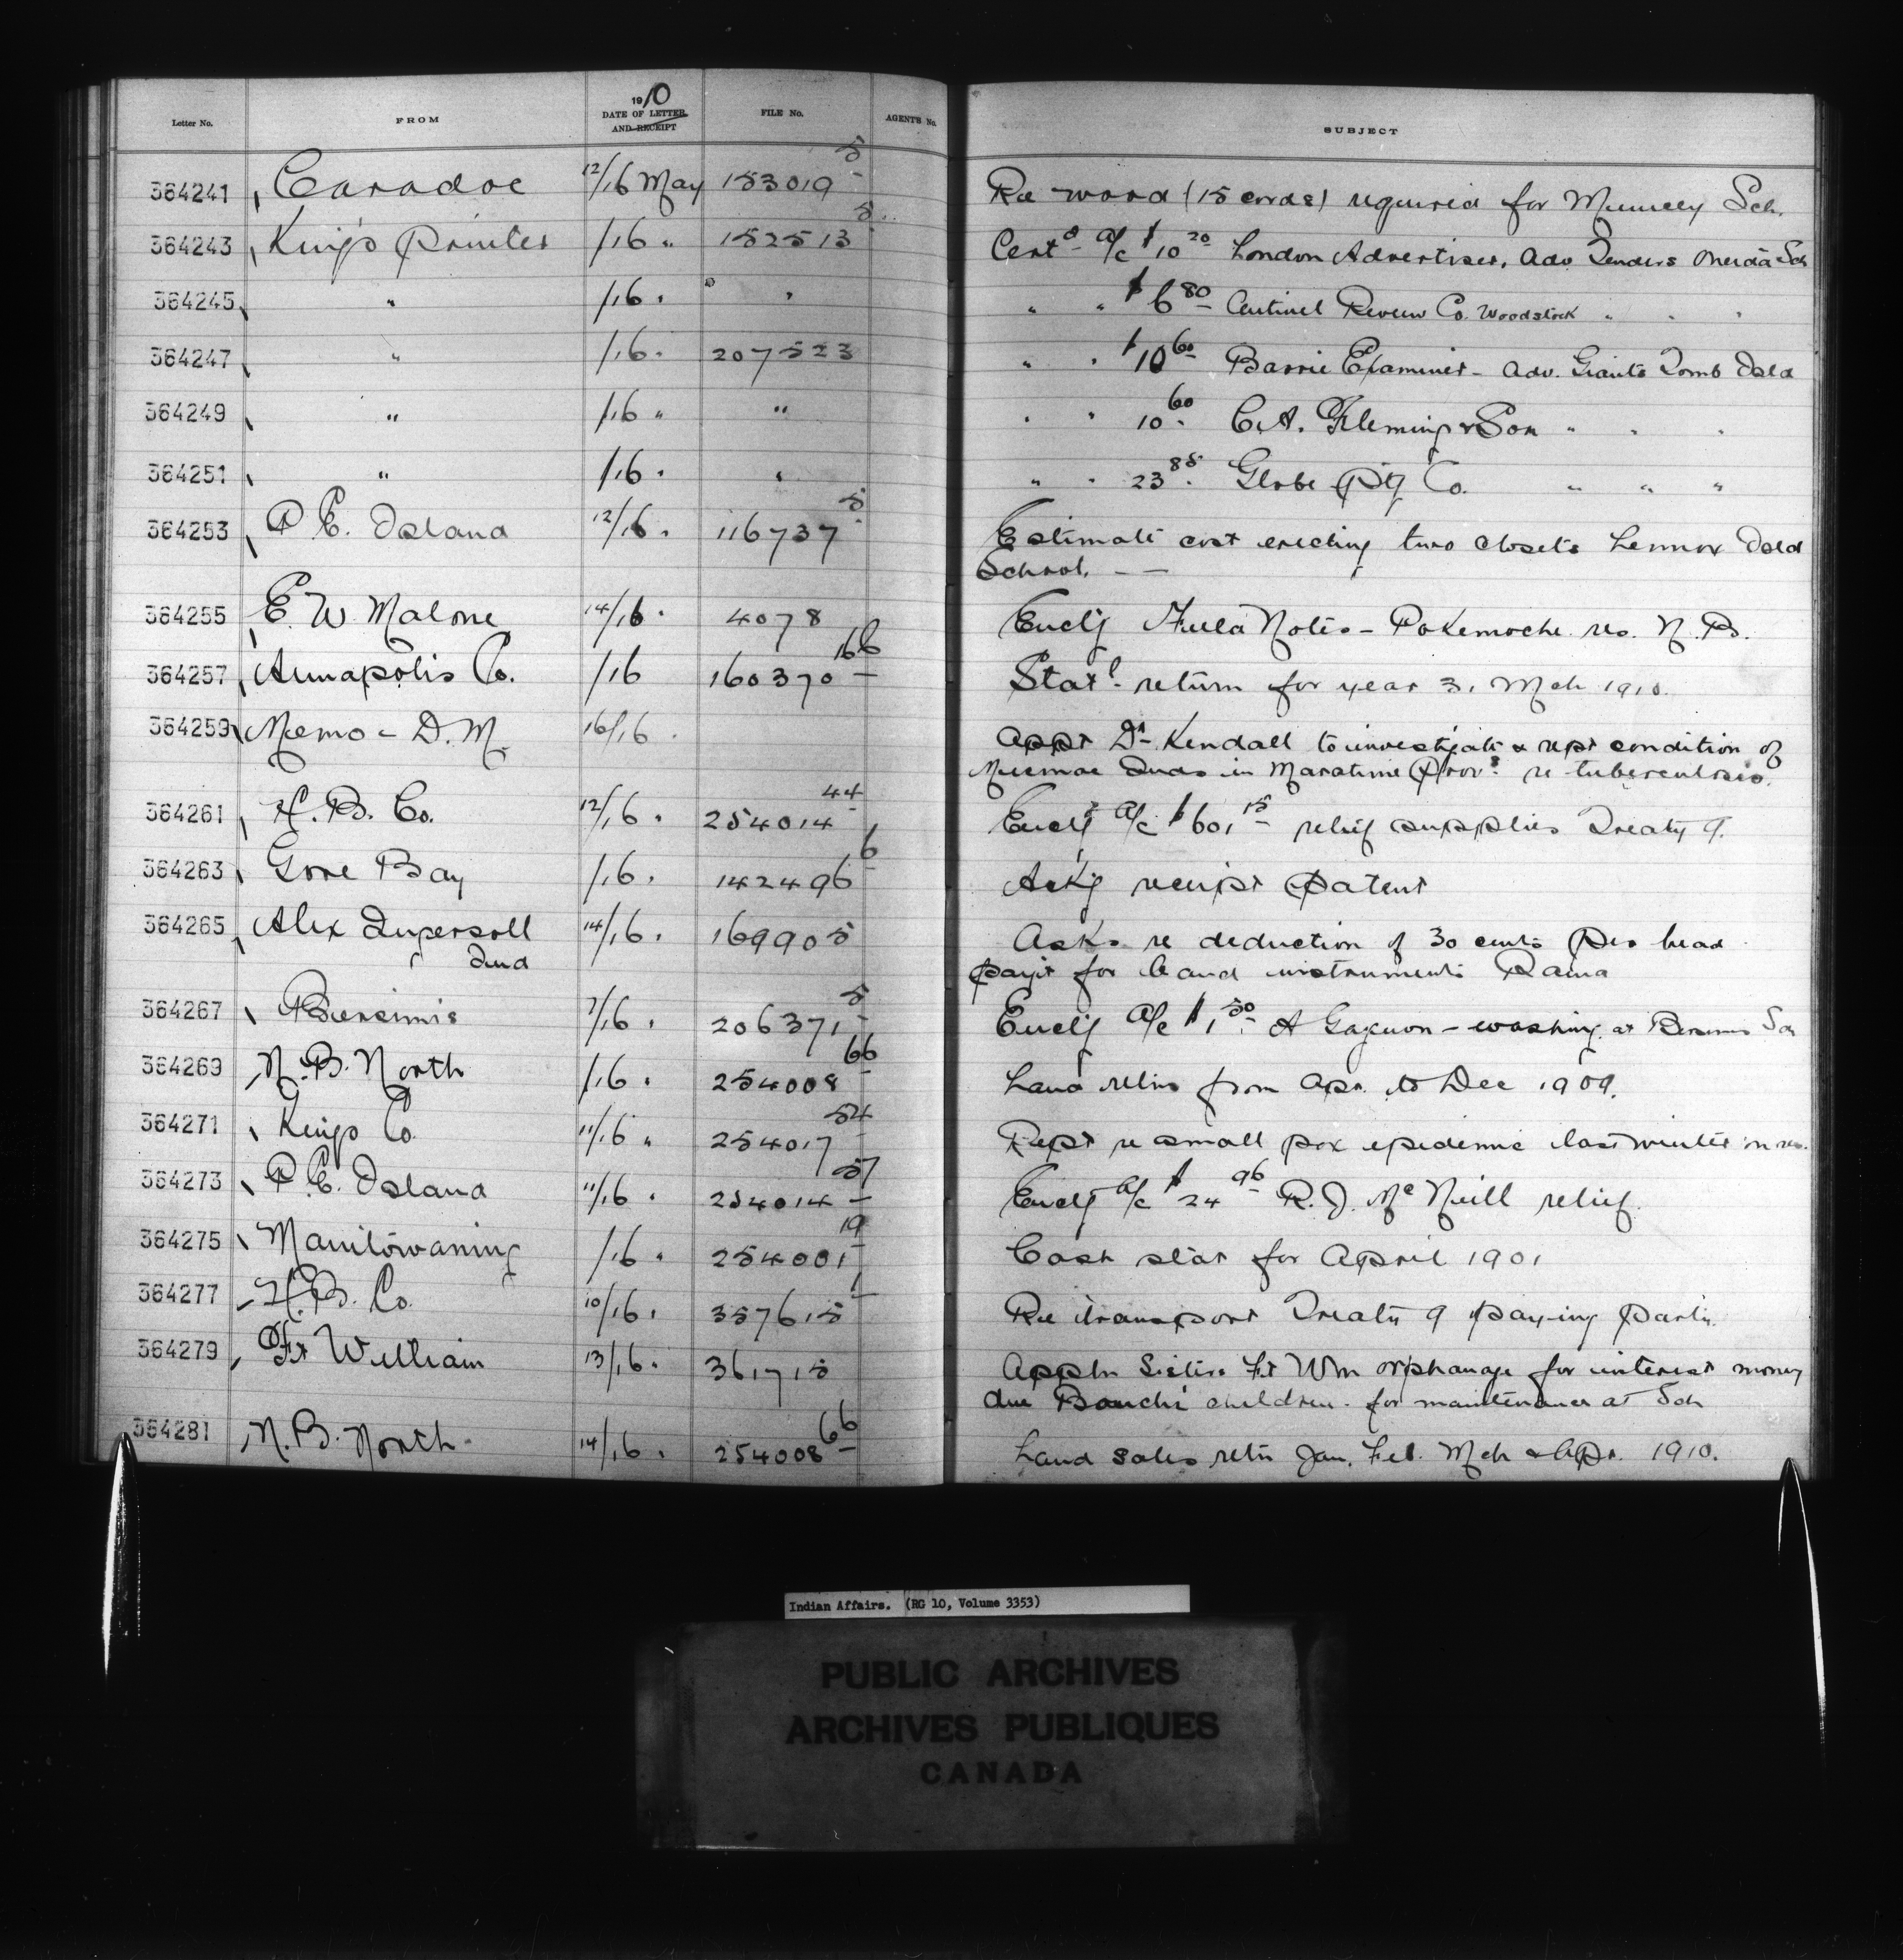 Letter No. FROM 1910 DATE OF LETTER AND RECEIPT FILE No. AGENTS No. SUBJECT
364241 Caradoc 12/16 May 153019-5 Re wood (15 cords) required for Muncey Sch.
364243 King's Printer /16 " 152513-5 Certd a/c $10 20 London Advertiser, Adv Tenders Oneida Sch
364245 " /16 " " " " $6 80 Sentinel Review Co. Woodstock " " "
364247 " /16 " 207523 " " $10 60 Barrie Examiner - Adv. Giants Tomb Isld
364249 " /16 " " " " 10 60 C.A. Fleming & Son " " "
364251 " /16 " " " " 23 85 Globe Ptg Co. " " "
364253 P E. Island 12/16 " 116737-5 Estimate cost erecting two closets Lennox Isld
School. — —
364255 E. W. Malone 14/16 " 4078 Enclg Field Notes - Pokemoche res. N.B.
364257 Annapolis Co. /16 160370-166 Statl return for year 31 Mch 1910.
364259 Memo - D.M. 16/16 " Appt Dr Kendall to investigate & rept condition of
Micmac Inds in Maratime Provs re tuberculosis.
364261 H. B. Co. 12/16 " 254014-44 Enclg a/c $601 15 relief supplies Treaty 9.
364263 Gore Bay /16 " 142496-6 Ackg receipt Patent
364265 Alex Ingersoll 14/16 " 169905 Asks re deduction of 30 cents per head
Ind payt for band instruments Rama
364267 Bersimis 7/16 " 206371-5 Enclg a/c $1 50 A Gagnon - washing at Bersimis Sch
364269 N. B. North /16 " 254008-66 Land retns from Apr. to Dec 1909.
364271 Kings Co. 11/16 " 254017-54 Rept re small pox epidemic last winter on res.
364273 P. E. Island 11/16 " 254014-57 Enclg a/c $24 96 R. J. McNeill relief.
364275 Manitowaning /16 " 254001-19 Cash stat for April 1901
364277 H. B. Co. 10/16 " 357615-1 Re transport Treaty 9 paying party.
364279 Ft William 13/16 " 361715 Appln Sisters Ft Wm orphanage for interest money
due Bouchi children for maintenance at Sch
364281 N. B. North 14/16 " 254008-66 Land sales retn Jan. Feb. Mch & Apr. 1910.
Indian Affairs. (RG 10, Volume 3353)
PUBLIC ARCHIVES
ARCHIVES PUBLIQUES
CANADA